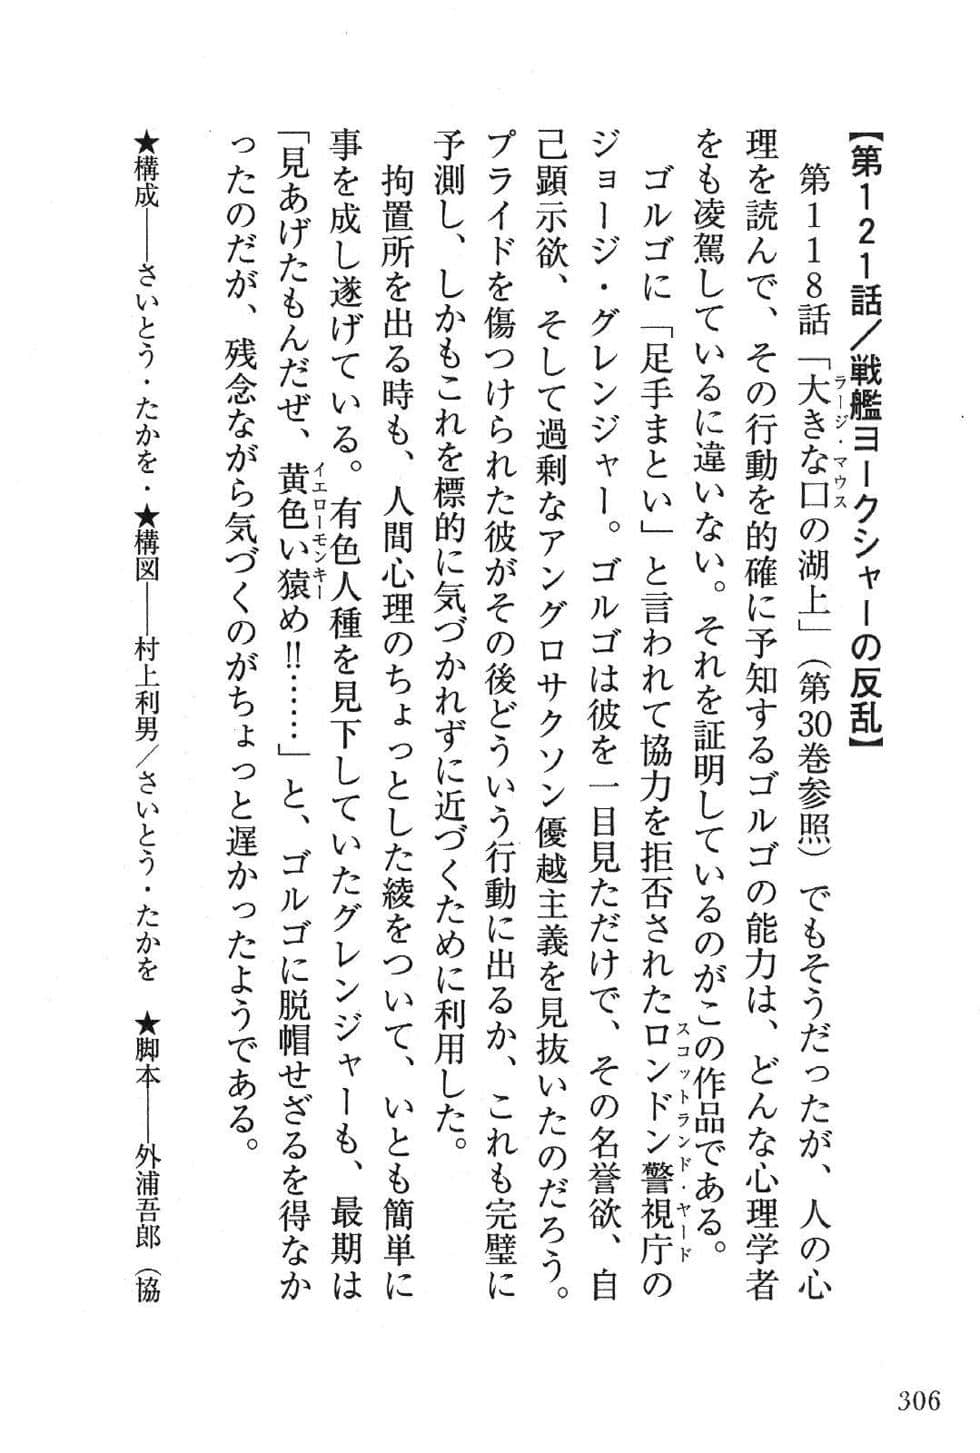 【第121話／戦艦ヨークシャーの反乱】
第118話「大きな口の湖上」（第30巻参照）でもそうだったが、人の心
ラージ・マウス
理を読んで、その行動を的確に予知するゴルゴの能力は、どんな心理学者
をも凌駕しているに違いない。それを証明しているのがこの作品である。
ゴルゴに「足手まとい」と言われて協力を拒否されたロンドン警視庁の
スコットランド・ヤード
ジョージ・グレンジャー。ゴルゴは彼を一目見ただけで、その名誉欲、自
己顕示欲、そして過剰なアングロサクソン優越主義を見抜いたのだろう。
プライドを傷つけられた彼がその後どういう行動に出るか、これも完璧に
予測し、しかもこれを標的に気づかれずに近づくために利用した。
拘置所を出る時も、人間心理のちょっとした綾をついて、いとも簡単に
事を成し遂げている。有色人種を見下していたグレンジャーも、最期は
「見あげたもんだぜ、黄色い猿め!!……」と、ゴルゴに脱帽せざるを得なか
イエローモンキー
ったのだが、残念ながら気づくのがちょっと遅かったようである。
★構成――さいとう・たかを・★構図――村上利男／さいとう・たかを ★脚本――外浦吾郎（協
306